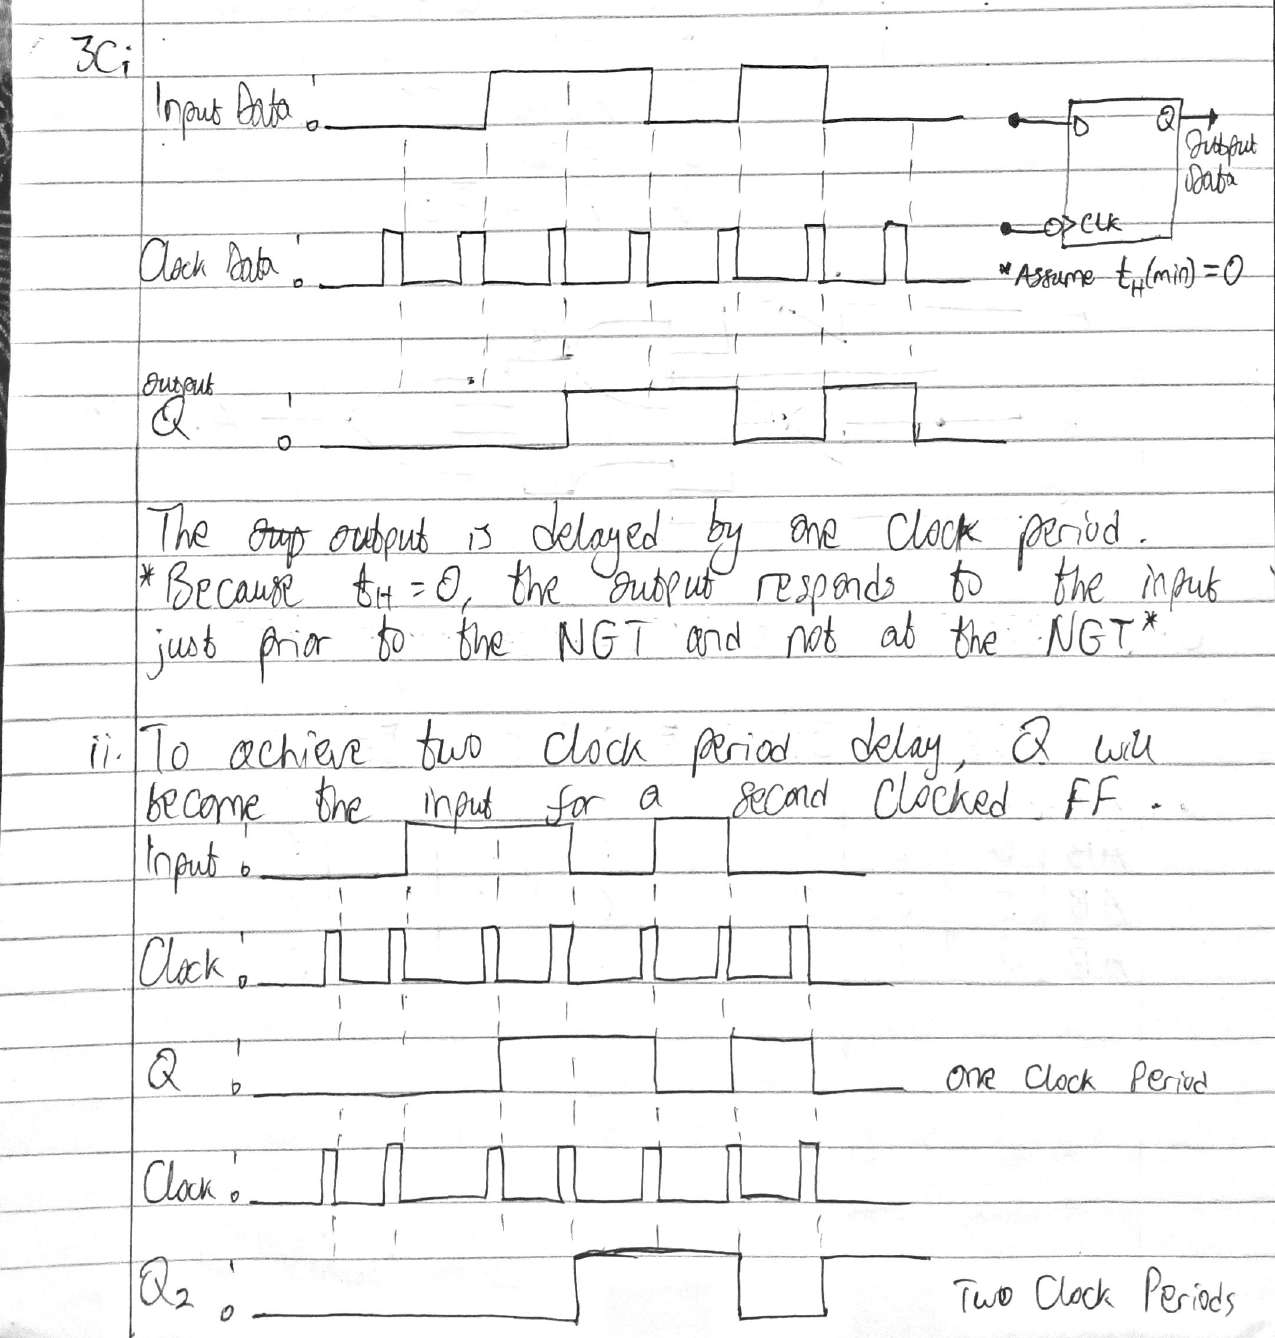 3Ci
Input Data 1 0
D Q
Output
Data
CLK
Clock Data 1 0
*Assume tH(min) = 0
output
Q 1 0
The output is delayed by one Clock period.
*Because tH = 0, the output responds to the input
just prior to the NGT and not at the NGT*
ii. To achieve two clock period delay, Q will
become the input for a second Clocked FF.
Input 1 0
Clock 1 0
Q 1 0 one Clock Period
Clock 1 0
Q2 1 0 Two Clock Periods